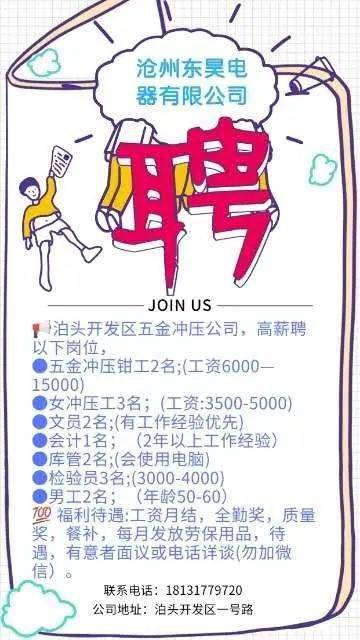 沧州东昊电
器有限公司
聘
JOIN US
📢泊头开发区五金冲压公司，高薪聘
以下岗位，
●五金冲压钳工2名;(工资6000—
15000)
●女冲压工3名；(工资:3500-5000)
●文员2名;(有工作经验优先)
●会计1名；（2年以上工作经验）
●库管2名;(会使用电脑)
●检验员3名;(3000-4000)
●男工2名；（年龄50-60）
💯 福利待遇:工资月结，全勤奖，质量
奖，餐补，每月发放劳保用品，待
遇，有意者面议或电话详谈(勿加微
信）。
联系电话：18131779720
公司地址：泊头开发区一号路